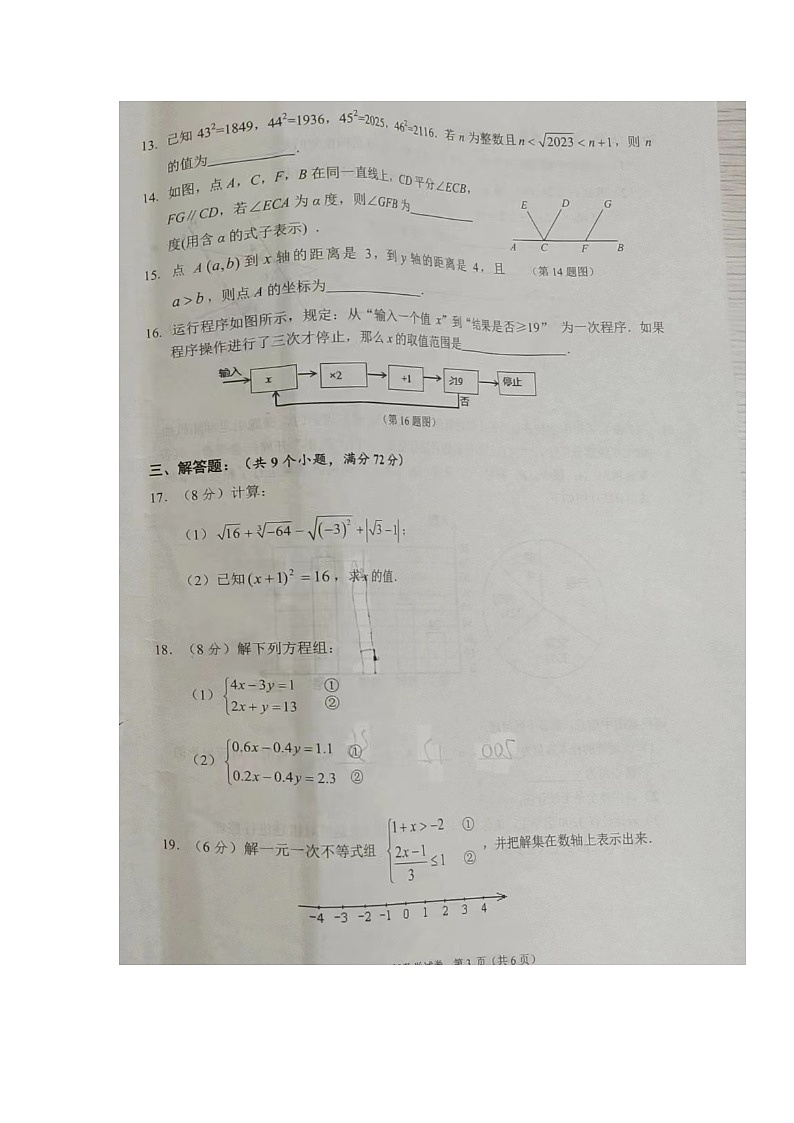 13. 已知 43²=1849，44²=1936，45²=2025，46²=2116．若 n 为整数且 n< √2023 < n+1，则 n
的值为__________.
14. 如图，点 A，C，F，B 在同一直线上，CD 平分∠ECB，
FG∥CD，若∠ECA 为 α 度，则∠GFB 为__________
度(用含 α 的式子表示)．
E D G
A C F B
（第 14 题图）
15. 点 A (a,b) 到 x 轴的距离是 3，到 y 轴的距离是 4，且
a > b，则点 A 的坐标为______________.
16. 运行程序如图所示，规定：从“输入一个值 x”到“结果是否≥19” 为一次程序．如果
程序操作进行了三次才停止，那么 x 的取值范围是______________.
输入 x ×2 +1 ≥19 停止
否
（第 16 题图）
三、解答题：（共 9 个小题，满分 72 分）
17. （8 分）计算：
（1）√16 + ³√−64 − √(−3)² + |√3 −1|；
（2）已知 (x+1)² = 16，求 x 的值.
18. （8 分）解下列方程组：
（1）{4x−3y=1 ①
2x+y=13 ②
（2）{0.6x−0.4y=1.1 ①
0.2x−0.4y=2.3 ②
19. （6 分）解一元一次不等式组 {1+x>−2 ① (2x−1)/3 ≤1 ② ，并把解集在数轴上表示出来.
-4 -3 -2 -1 0 1 2 3 4
第 3 页（共 6 页）